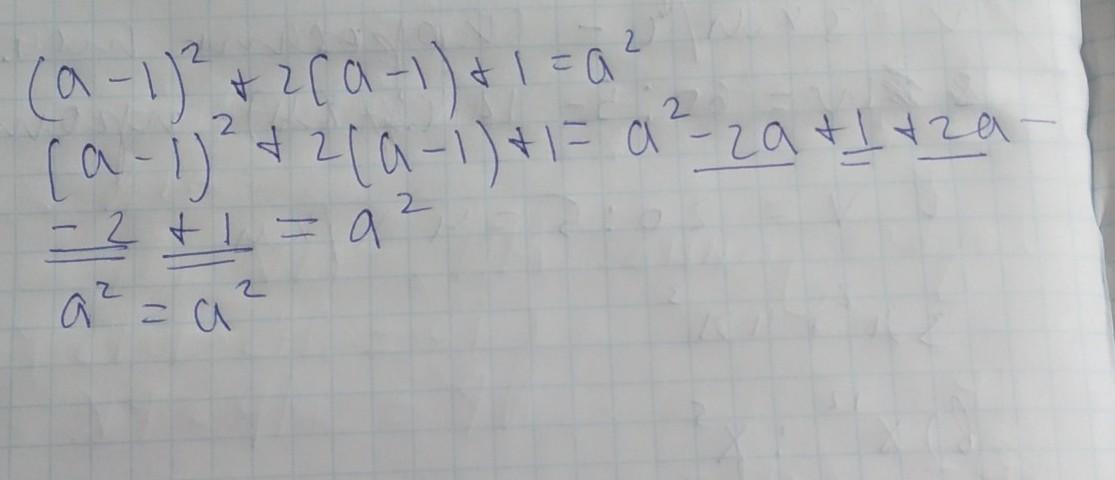 (a-1)² + 2(a-1) + 1 = a²
(a-1)² + 2(a-1) + 1 = a² - 2a + 1 + 2a -
- 2 + 1 = a²
a² = a²